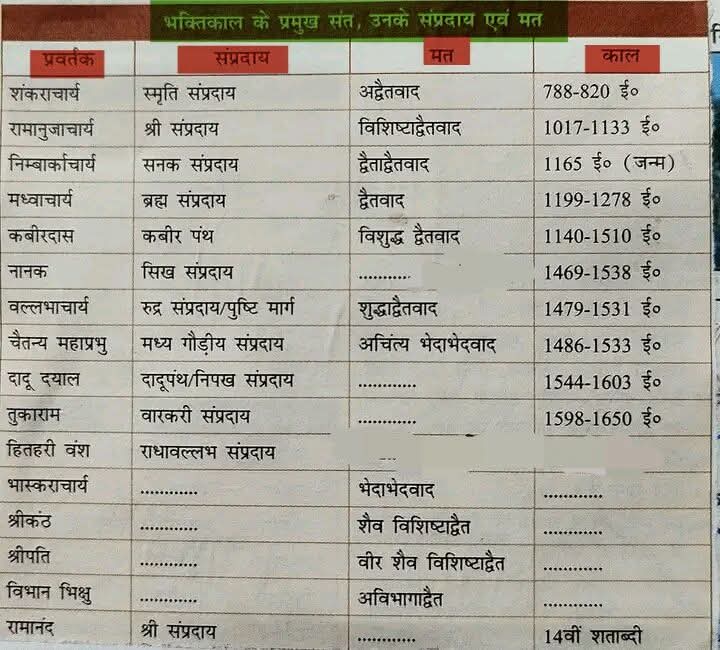 भक्तिकाल के प्रमुख संत, उनके संप्रदाय एवं मत
प्रवर्तक संप्रदाय मत काल
शंकराचार्य स्मृति संप्रदाय अद्वैतवाद 788-820 ई०
रामानुजाचार्य श्री संप्रदाय विशिष्टाद्वैतवाद 1017-1133 ई०
निम्बार्काचार्य सनक संप्रदाय द्वैताद्वैतवाद 1165 ई० (जन्म)
मध्वाचार्य ब्रह्म संप्रदाय द्वैतवाद 1199-1278 ई०
कबीरदास कबीर पंथ विशुद्ध द्वैतवाद 1140-1510 ई०
नानक सिख संप्रदाय ........... 1469-1538 ई०
वल्लभाचार्य रुद्र संप्रदाय/पुष्टि मार्ग शुद्धाद्वैतवाद 1479-1531 ई०
चैतन्य महाप्रभु मध्य गौड़ीय संप्रदाय अचिंत्य भेदाभेदवाद 1486-1533 ई०
दादू दयाल दादूपंथ/निपख संप्रदाय ............ 1544-1603 ई०
तुकाराम वारकरी संप्रदाय ............ 1598-1650 ई०
हितहरी वंश राधावल्लभ संप्रदाय
भास्कराचार्य ............ भेदाभेदवाद ............
श्रीकंठ ............ शैव विशिष्टाद्वैत ............
श्रीपति ............ वीर शैव विशिष्टाद्वैत ............
विभान भिक्षु ............ अविभागाद्वैत ............
रामानंद श्री संप्रदाय ............ 14वीं शताब्दी